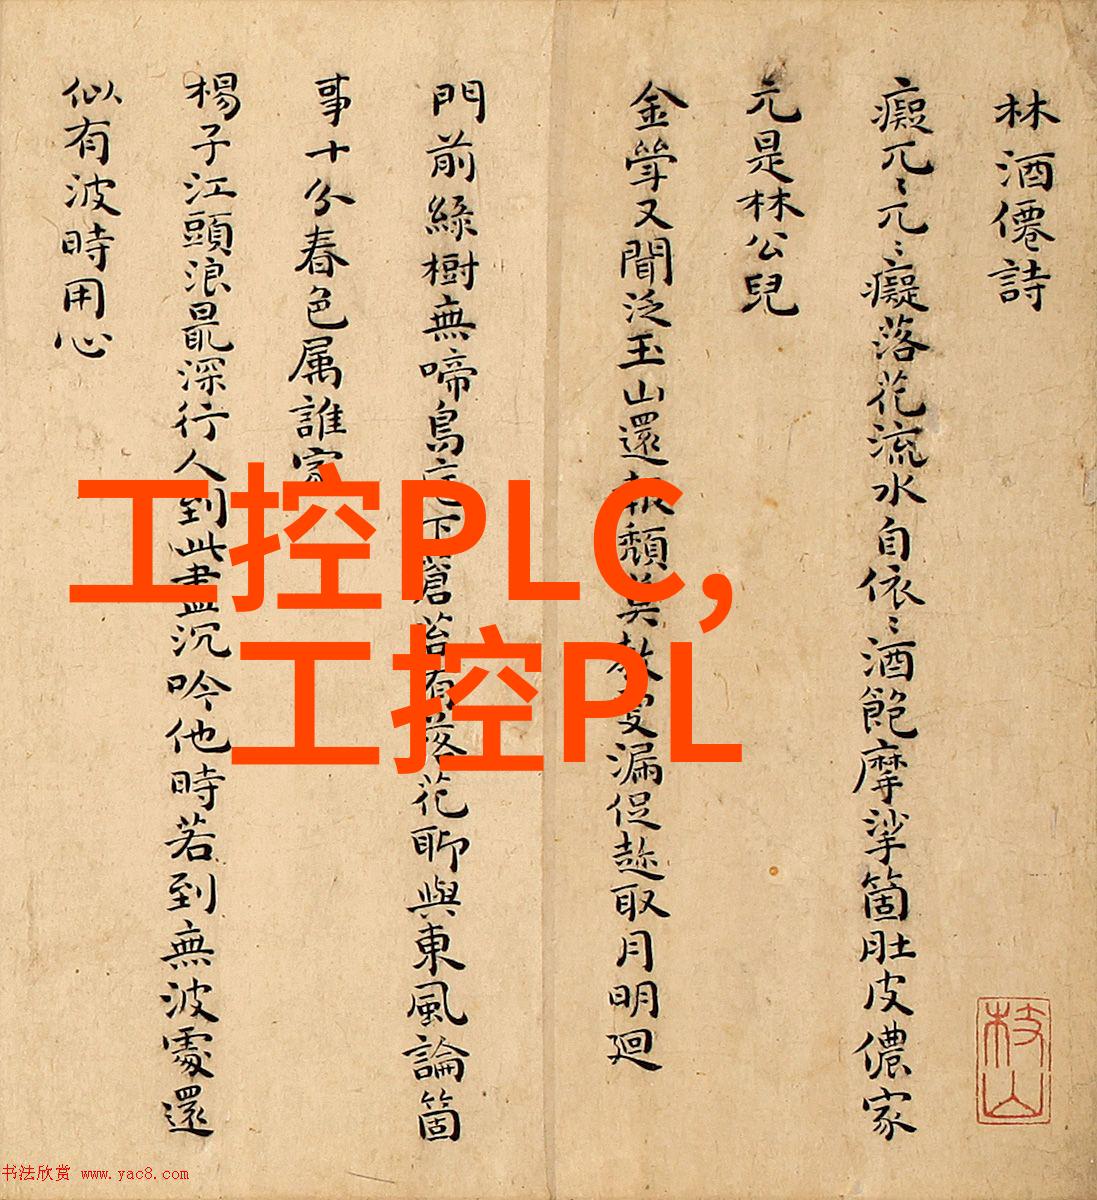 林酒僊詩
癡兀〻兀〻癡落花流水自依〻酒飽摩挲箇肚皮儂家
元是林公兒
金斚又聞泛玉山還報頹莫教更漏促趂取月明廻
門前綠樹無啼鳥庭下蒼苔有落花聊與東風論箇
事十分春色属誰家
楊子江頭浪最深行人到此盡沉吟他時若到無波處還
似有波時用心
枝山
工控PLC,
工控PL
书法欣赏 www.yac8.com